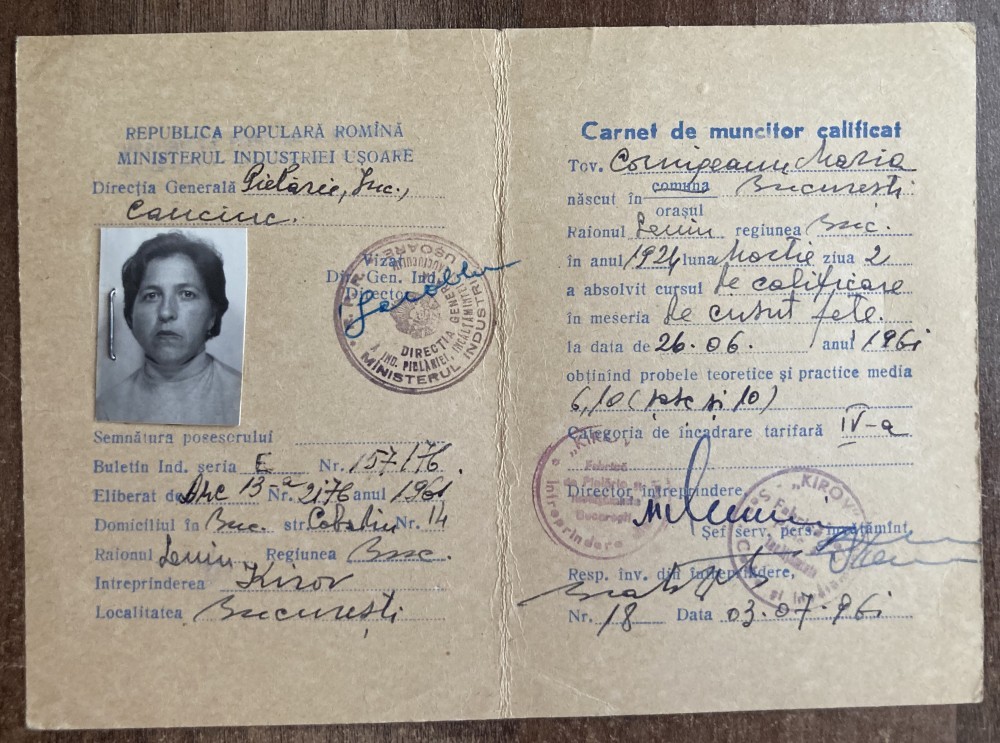 REPUBLICA POPULARĂ ROMÎNĂ
MINISTERUL INDUSTRIEI UȘOARE
Direcția Generală Pielărie, Înc.,
Cauciuc.
Vizat
Dir. Gen. Ind.
Director
DIRECȚIA GENERALĂ
A IND. PIELĂRIEI, ÎNCĂLȚĂMINTEI
MINISTERUL INDUSTRIEI UȘOARE
Semnătura posesorului
Buletin Ind. seria E Nr. 157176.
Eliberat de 13-a Nr. 2176 anul 1961
Domiciliul în Buc. str. Nr. 14
Raionul Lenin Regiunea Buc.
Intreprinderea Kirov
Localitatea București
Carnet de muncitor calificat
Tov. Maria
născut în comuna București
orașul
Raionul Lenin regiunea Buc.
în anul 1924 luna Martie ziua 2
a absolvit cursul de calificare
în meseria de cusut fețe.
la data de 26.06. anul 1961
obținînd probele teoretice și practice media
6,10 (șase și 10)
Categoria de încadrare tarifară IV-a
"KIROV"
Fabrica
București
Intreprindere
Director întreprindere,
"KIROV"
Șef serv. pers. învățămînt,
Resp. înv. din întreprindere,
Nr. 18 Data 03.07.961